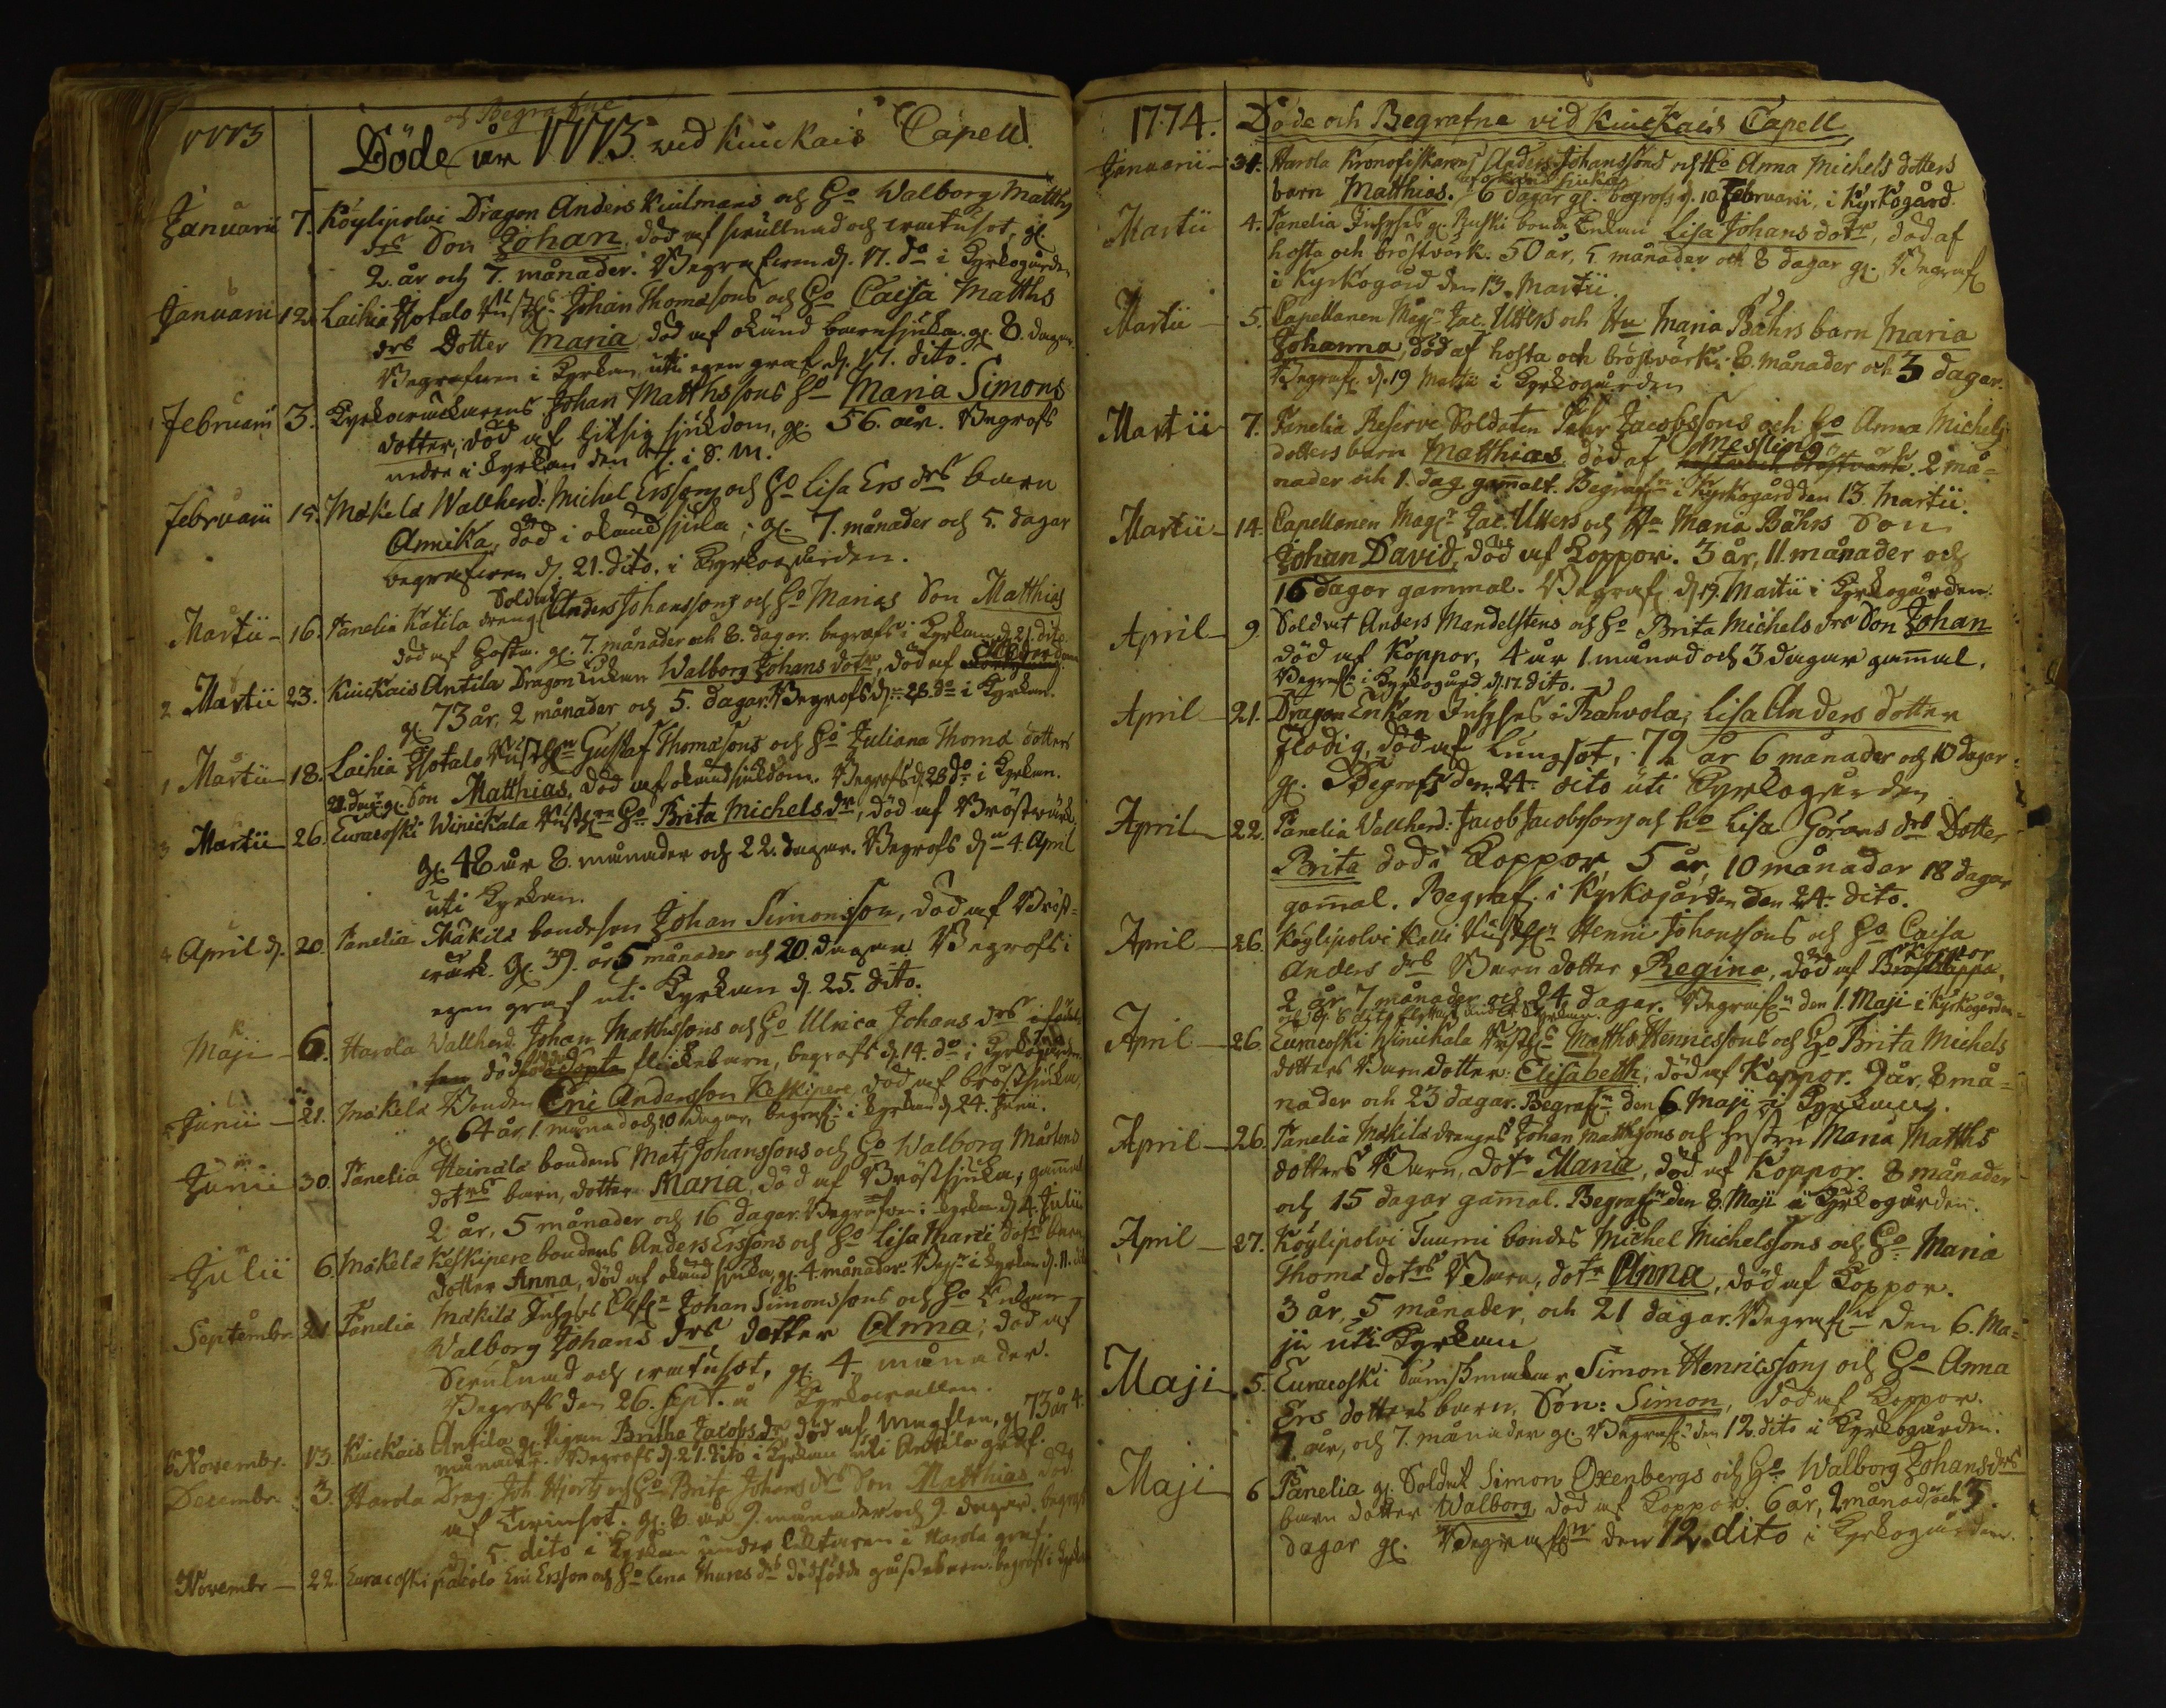 1773
och Begrafne
Döde år 1773. wid Kiuckais Capell.
Januarii 7. Köylipolvi Dragon Anders Kiulmans och Ho Walborg Matths
drs Son Johan, död af
2. år och 7. månader. Begrafven d. 17. do i Kyrkogården
Januarii 12. Laihia Ylötalo Rusth. Johan Thomæsons och Ho Caisa Matths
drs Dotter Maria, död af okänd barnsjuka. gl. 8. dagar.
Begrafven i Kyrkan, uti egen graf d. 17. dito.
Februarii 3. Kyrkowäktarens Johan Matthssons Ho Maria Simons
dotter, död af hitsig sjukdom, gl. 56. år. Begrofs
nedre i kyrkan den 7. i S. M.
Februarii 15. Mäkelä Wallherd: Michel Erssons och Ho Lisa Ers drs barn
Annika, död i okänd sjuka; gl. 7. månader och 5. dagar
begrafven d. 21. dito. i Kyrkogården.
Soldat
Martii - 16. Panelia Katila dreng Anders Johanssons och Ho Marias Son Matthias
död af Hosta. gl. 7. månader och 8. dagar. begrafs i Kyrkan d. 21. dito
2 Martii 23. Kiuckais Antila Dragon Enkan Walborg Johans dotr, död af
gl 73 år, 2 månader och 5. dagar. Begrofs d. 28. do i Kyrkan.
1 Martii 18. Laihia Ylötalo Rusth. Gustaf Thomæsons och Ho Juliana Thomæ dotters
21. dagr gl. Son Matthias, död af okänd sjukdom. Begrofs d. 28 do i Kyrkan.
3 Martii 26. Euracoski Winickala Rusth. Ho Brita Michels dr, död af Bröstwärk.
gl. 48 år 8. månader och 22. dagar. Begrofs d. 4. April
uti Kyrkan.
4 April d. 20. Panelia Mäkilä bondeson Johan Simonsson, död af Bröst-
wärk. gl. 39. år 5 månader och 20. dagar. Begrofs i
egen graf uti Kyrkan d. 25. dito.
Maji - 6. Harola Wallherd. Johan Matthssons och Ho Ulrica Johans drs
dödfödda flickebarn, begrofs d. 14. do i Kyrkogården
Junii - 21. Mäkelä Bonden Eric Andersson Keskipere död af bröstsjuka,
gl. 64 år 1. månad och 10 dagar, begrafs i kyrkan d. 24. Junii.
Junii 30. Panelia Heinälä bondens Mats Johanssons och Ho Walborg Mårtens
dotrs barn, dotter Maria, död af Bröstsjuka, gammal
2 år, 5 månader och 16 dagar. Begrafven i kyrkan d. 4. Julii
Julii 6. Mäkelä Keskipere bondens Anders Erssons och Ho Lisa Marci dotrs barn
dotter Anna, död af okänd sjuka, gl. 4. månader. i kyrkan d. 11. dito
Septembr. 21. Panelia Mäkilä Inhyses Johan Simonssons och Ho Enkan
Walborg Johans drs dotter Anna; död af
gl. 4. månader.
Begrofs den 26. Sept. å
6 Novembr. 13. Kiuckais Antila gl. Pigan Britha Jacobs dr, död af Magplen, gl 73 år 4.
månader. Begrofs d. 21. dito i Kyrkan uti Anttila graf.
Decembr. 3. Harola Drag: Joh Hjorts och Ho Brita Johans drs Son Matthias död
af gl. 8. år 9. månader och 9. dagar. begrafs
d. 5 dito i Kyrkan under Altaren i Harola graf.
Novembr - 22. Euracoski Eric Ersson och Ho Lena Thures drs dödfödde gåssebarn. begrofs i kyrkan
1774. Döde och Begrafne vid Kiuckais Capell
Januarii - 31. Harola Kronofiskarens Anders Johanssons och Ho Anna Michels dotters
af okänd siuka
barn Matthias. 6 dagar gl. begrofs d. 10 Februarii, i Kyrkogård.
Martii 4. Panelia Inhyses gl. bonde Enkan Lisa Johans dotr, död af
hosta och bröstvärk. 50 år, 5 månader och 8 dagar gl. Begraf
i Kyrkogård den 13. Martii.
Martii - 5. Capellanen Mag. Jac. Utters och Hu Maria Bährs barn Maria
Johanna, död af hosta och bröstvärk: 8. månader och 3 dagar.
Begraf. d. 19 Martii i Kyrkogården
Martii 7. Panelia Reserve Soldaten Petter Jacobssons och Ho Anna Michels
Messling
dotters barn Matthias död af hosta och bröstvärk. 2 må-
nader och 1. dag gamalt. Begrafn i Kyrkogård den 13. Martii.
Martii - 14. Capellanen Mag. Jac. Utters och Hu Maria Bährs Son
Johan David, död af Koppor. 3 år, 11. månader och
16 dagar gammal. Begraf d. 19. Martii i Kyrkogården.
April - 9. Soldat Anders Mandelstens och Ho Brita Michels drs Son Johan
död af Koppor, 4 år 1 månad och 3 dagar gamal.
Begraf i Kyrkogård d. 17. dito.
April - 21. Dragon Enkan Inhyses i Rahvola, Lisa Anders dotter
Flodig, död af Lungsot, 72 år 6 månader och 10 dagar
gl. Begrafs den 24. dito uti Kyrkogården
April - 22. Panelia Vallherd: Jacob Jacobssons och Ho Lisa Görans drs Dotter
Brita död i Koppor 5 år, 10 månader 18 dagar
gamal. Begraf. i Kyrkogården den 24. dito.
April - 26. Köylipolvi Kalli Rusth. Henric Johanssons och Ho Caisa
Koppor
Anders drs Barn dotter Regina, död af
2 år 7 månader och 24 dagar. Begrafn den 1. Maji i Kyrkogården
April - 26. Euracoski Winickala Rusth. Matths Henricssons och Ho Brita Michels
dotters Barn dotter: Elisabeth, död af Koppor. 9 år, 8 må-
nader och 23 dagar. Begrafn den 6 Maji i Kyrkan.
April - 26. Panelia Mäkilä drängs Johan Matthssons och Hustru Maria Matths
dotters Barn, dotr Maria, död af Koppor. 8 månader
och 15 dagar gamal. Begrafn den 8. Maji i Kyrkogården.
April - 27. Köylipolvi Tuumi bondes Michel Michelssons och Ho Maria
Thomæ dotrs Barn, dotr Anna, död af Koppor.
3 år, 5 månader, och 21 dagar. Begrafn den 6. Ma-
ji uti Kyrkan
Maji 5. Euracoski Simon Henricssons och Ho Anna
Ers dotters barn, Son: Simon, död af Koppor.
7 år, och 7. månader gl. Begraf. den 12. dito i Kyrkogården.
Maji 6 Panelia gl. Soldat Simon Oxenbergs och Ho Walborg Johans drs
barn dotter Walborg, död af Koppor. 6 år, 2 månad och 3.
dagar gl. Begrafn den 12 dito i Kyrkogården.